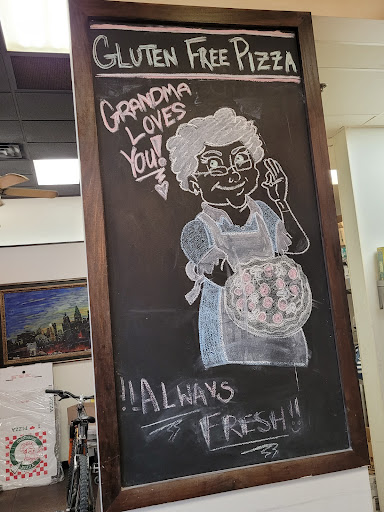 GLUTEN FREE PIZZA
GRANDMA
LOVES
YOU!
!!ALWAYS
FRESH!!
PIZZA